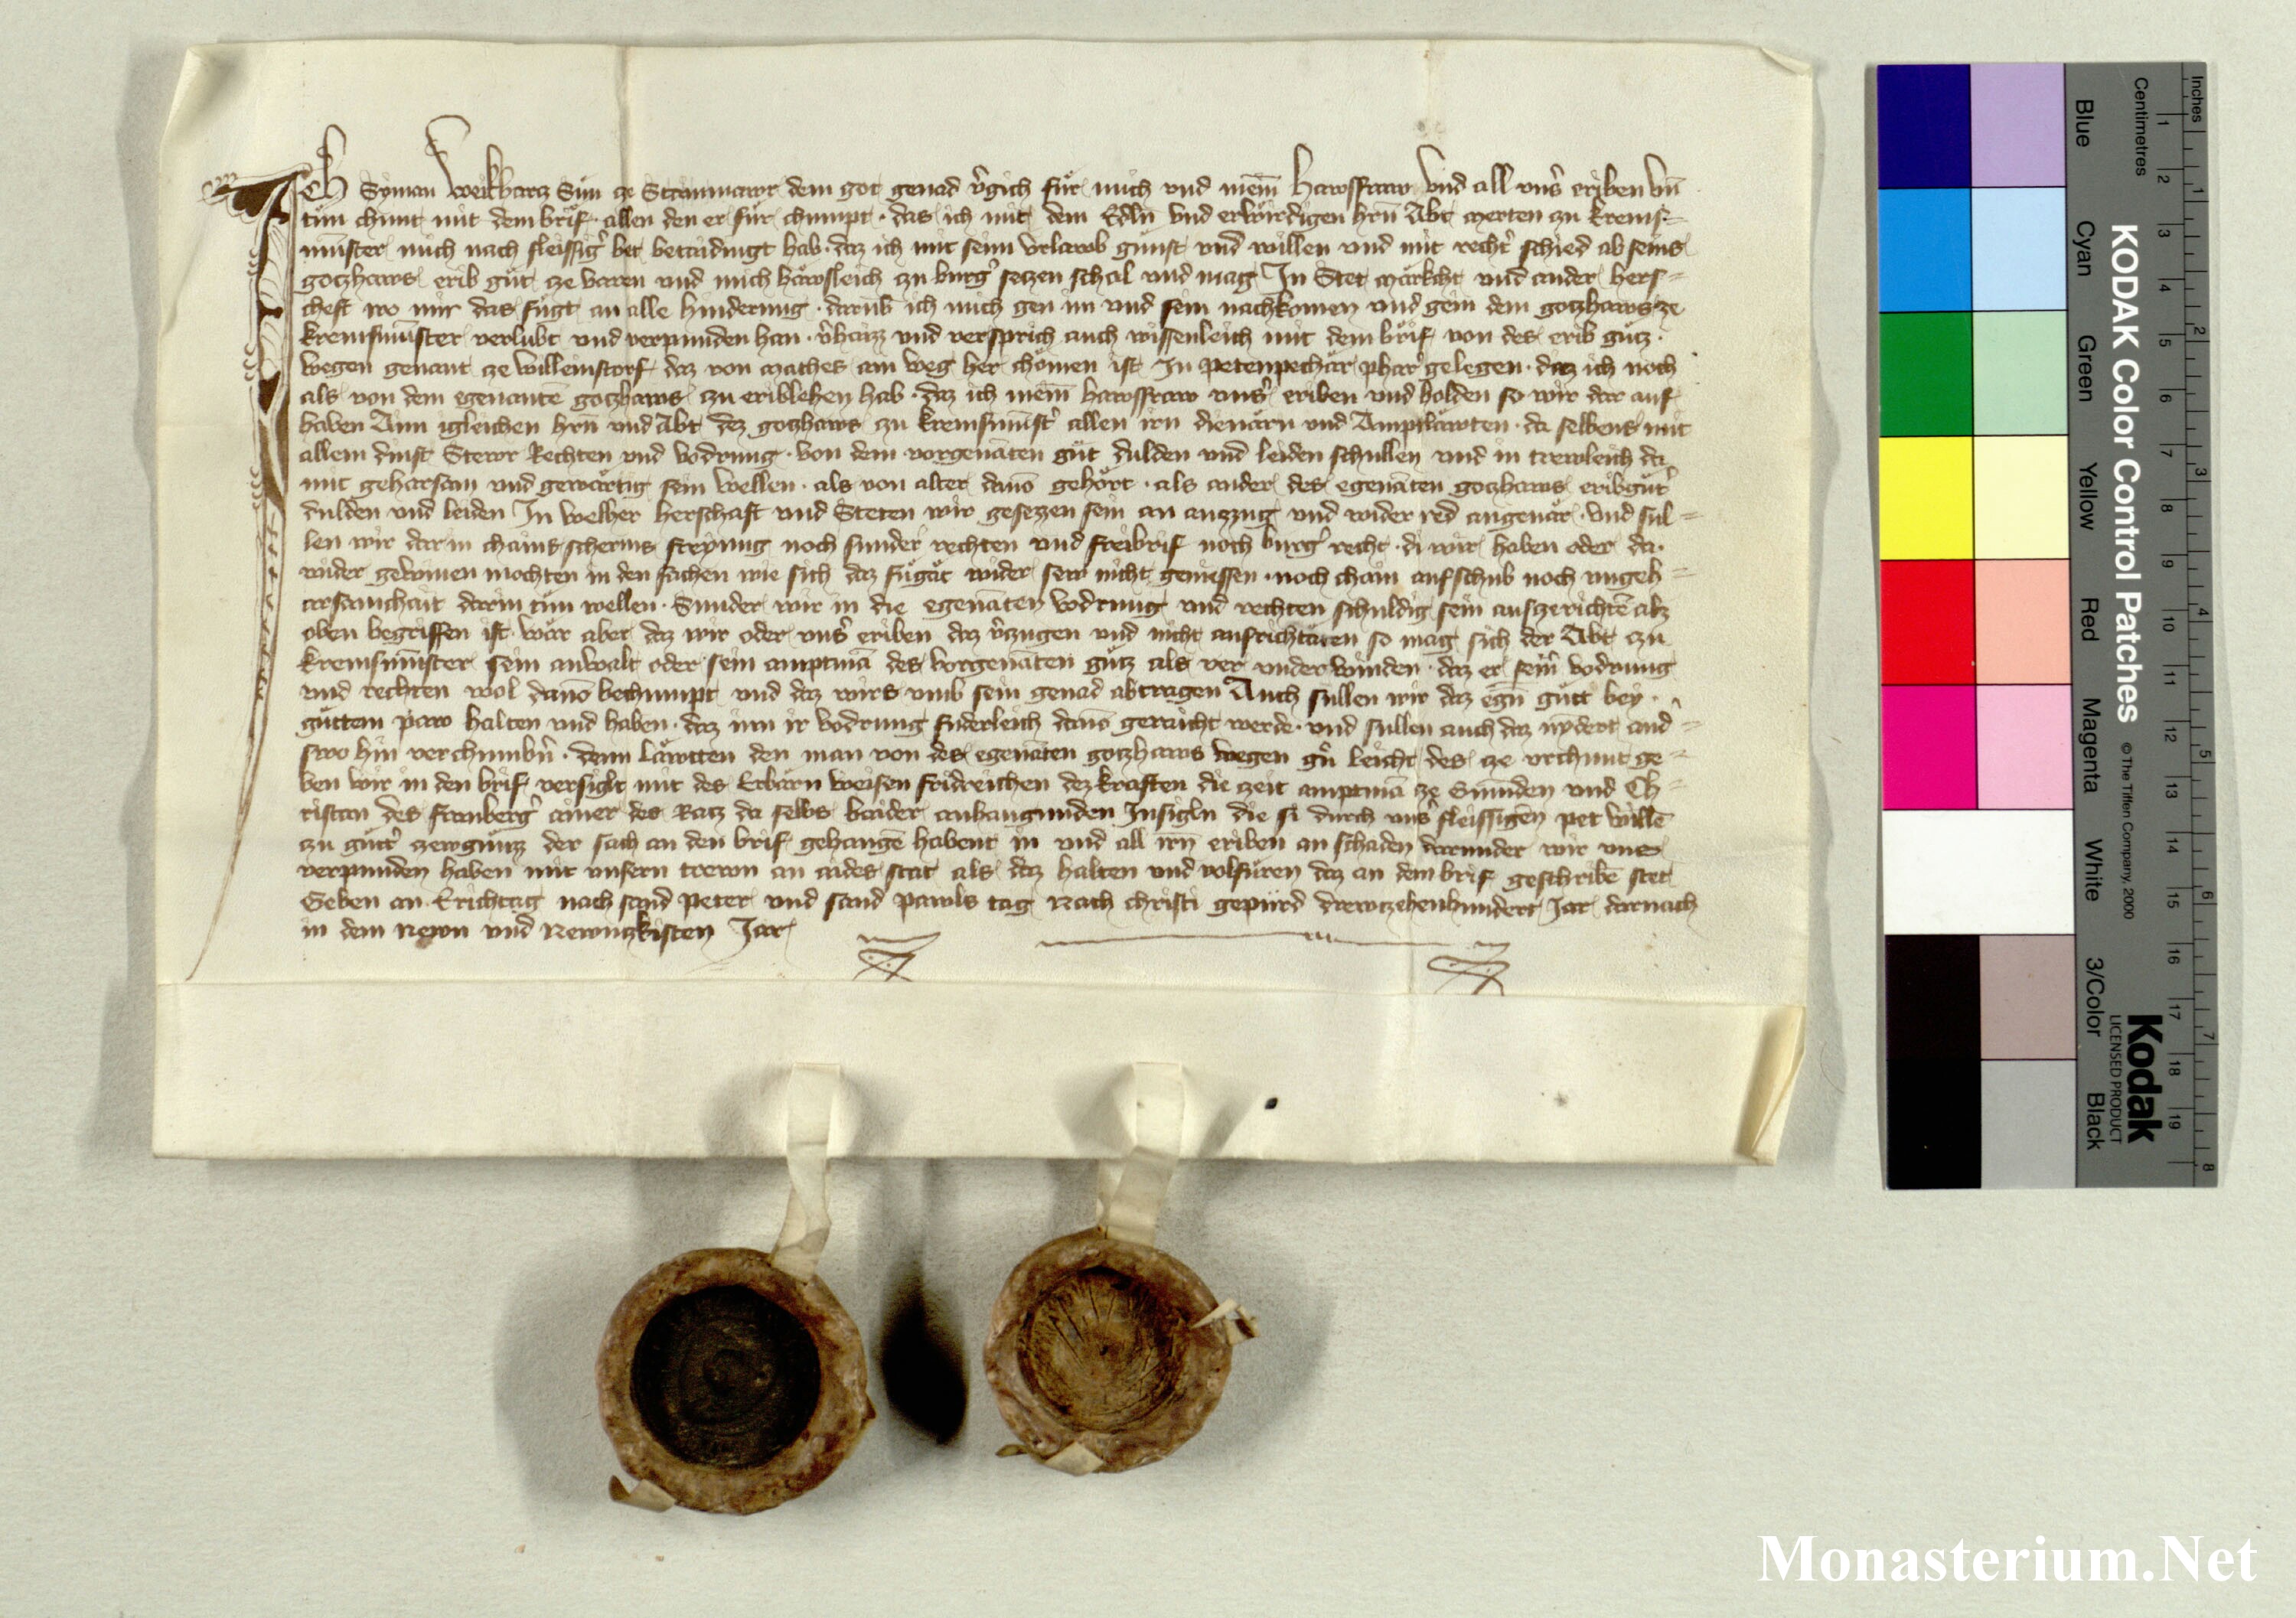 Ich Syman Weikharcz Sun ze Strannawr dem got genad v̄gich für mich und mein̄ hawsfraw Und all uns̄ eriben un̄
tun chunt mit dem brif allen den er für chumpt · das ich mit dem Edln̄ und erwirdigen hrn̄ Abt merten zu krems=
münster mich nach fleissiḡ bet betaidingt hab · daz ich mit seim Urlawb gunst und willen und mit recht̄ schied ab seins
gotzhaws erib gut ze varen und mich häwsleich zu burḡ setzen schol und mag In Stet märkcht und ander hers=
cheft wo mir das fügt an alle hinderung · darūb ich mich gen im und sein nachkomen und gein dem gotzhaws ze
kremsmünster verlubt und verpunden han · v̄haizz und versprich auch wissenleich mit dem brif von des erib gutz ·
wegen genant ze willeinstorf daz von mathes am weg her chömen ist In petenpechär pharr̄ gelegen · daz ich noch
als von dem egenantē gotzhaws zu eriblehen hab · daz ich mein̄ hawsfraw uns̄ eriben und holden so wir dar auf
haben Ainn igleichen hrn̄ und Abt dez gotzhaws zu kremsmūst̄ allen irn dienärn und Amptläwten · da selbens mit
allem dinst Stewr Rechten und vodrung · von dem vorgenāten gut dulden und leiden schullen und in trewleich da
mit gehorsam und gewärtig sein wellen · als von alter dauō gehört · als ander des egenāten gotzhaws eribgüt̄
dulden und leiden In welher herschaft und Steten wir gesezzen sein an auszug und wider red angenär · und sul=
len wir darin chains scherms freyung noch sunder rechten und freibrif noch burḡ recht · di wir haben oder da
wider gewinnen mochten in den sachen wie sich daz fugät wider sew nicht geniessen · noch chain aufschub noch ungeh=
orsamchait darin tun wellen · Sunder wir in die egenāten vodrung und rechten schuldig sein auszerichtē alz
oben begriffen ist · wär aber daz wir oder uns̄ eriben daz v̄zugen und nicht ausrichtäten so mag sich der Abt zu
kremsmünster sein anwalt oder sein amptmā des vorgenāten gutz als ver underwinden · daz er sein̄ vodrung
und rechten wol dauō bechumpt und daz wirs umb sein genad abtragen Auch sullen wir daz egn̄ gutt bey ·
guttem paw halten und haben · daz im ir vodrung fuderleich dauō geraicht werde · und sullen auch daz nydert and=
swo hin verchumbn̄ · denn läwtten den man von des egenāten gotzhaws wegen gn̄ leicht des ze urchunt ge=
ben wir in den brif versiglt mit des Erbärn weisen fridreichen dez kraften die zeit amptmā ze Gmunden und Ch=
ristan des framberḡ ainer des Ratz da selbs baider anhangunden Insigln die si durch uns̄ fleissigen pet willē
zu gutt̄ zewgnuzz der sach an den brif gehangē habent in und all irn̄ eriben an schaden darunder wir uns
verpunden haben mit unsern trewn an aides stat als daz halten und volfüren daz an dem brif geschribē stet
Geben an Erichtag nach sand peter und sand pawls tag Nach christi gepürd drewtzehenhundert Jar darnach
in dem Newn und Newntzkisten Jar
KODAK Color Control Patches © The Tiffen Company, 2000
Kodak
LICENSED PRODUCT
Inches
Centimetres
1 2 3 4 5 6 7 8 9 10 11 12 13 14 15 16 17 18 19
1 2 3 4 5 6 7 8
Blue
Cyan
Green
Yellow
Red
Magenta
White
3/Color
Black
Monasterium.Net